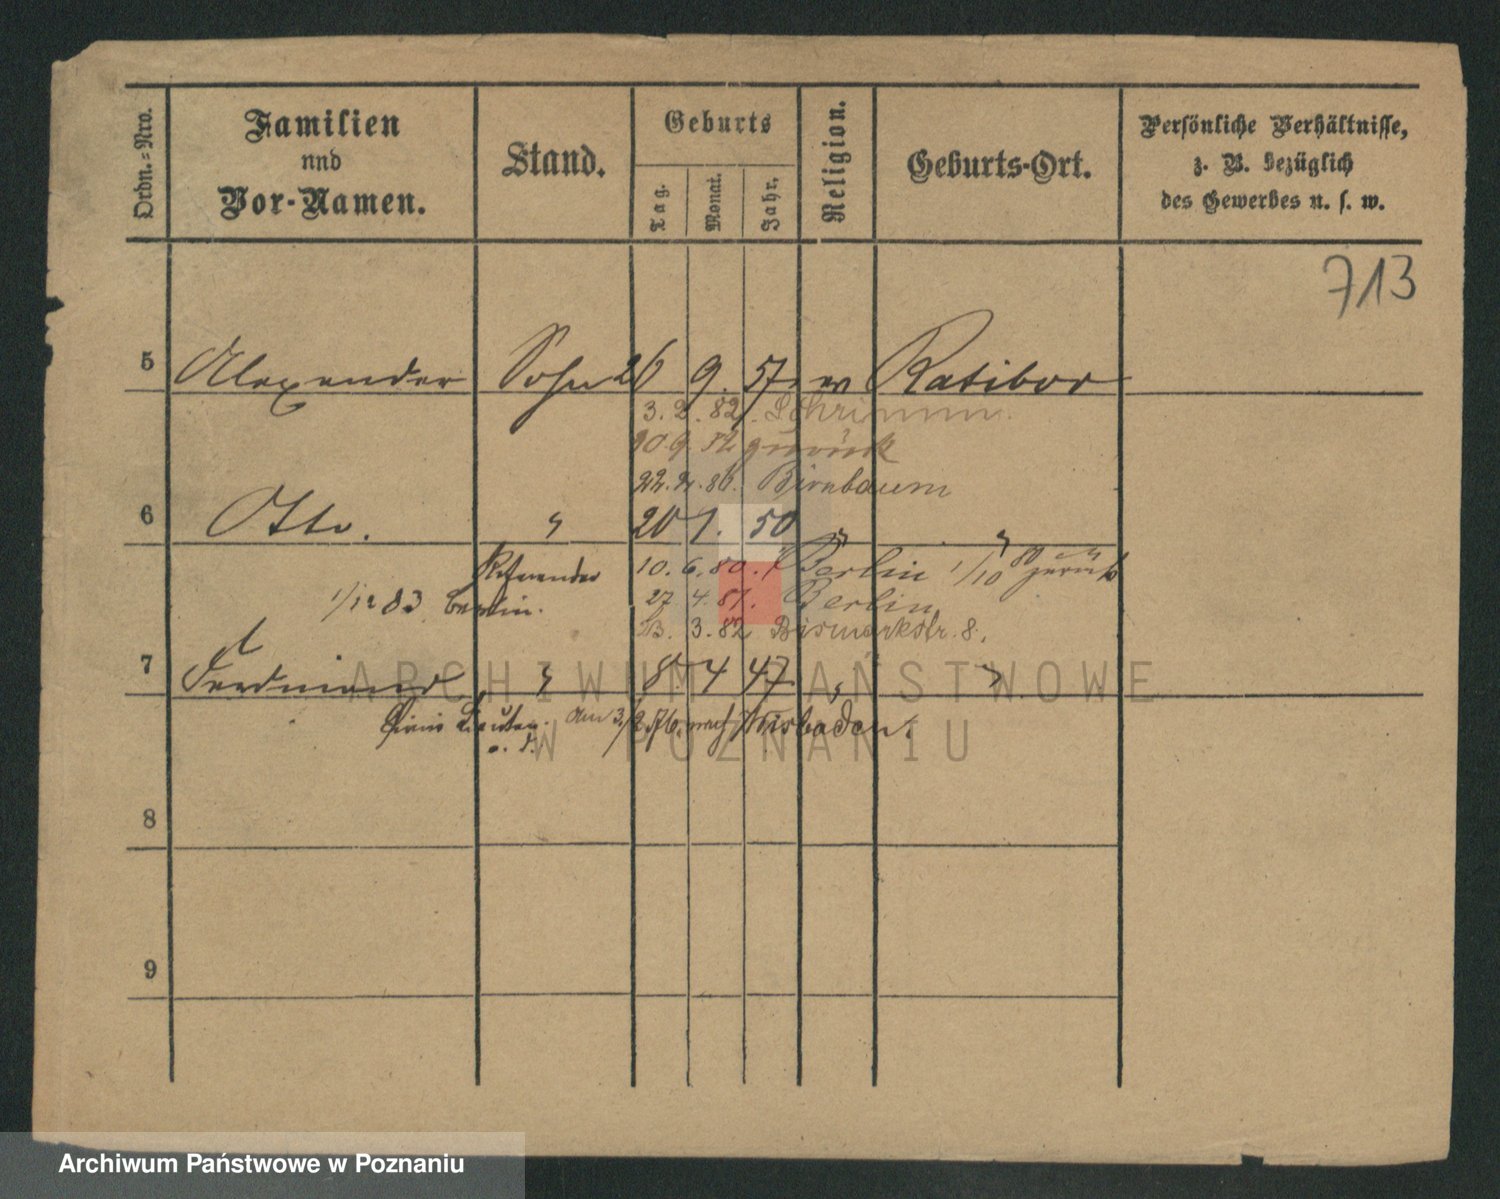 Ordn.-Nro.
Familien
und
Vor-Namen.
Stand.
Geburts
Tag.
Monat.
Jahr.
Religion.
Geburts-Ort.
Persönliche Verhältnisse,
z. B. bezüglich
des Gewerbes u. s. w.
713
5 Alexander Sohn 26 9. 57. ev Ratibor
3. 2. 82. Schrimm.
zurück
Birnbaum
6 Otto. " 20 1. 50 " "
Referendar 10. 6. 80. Berlin 1/10 80 zurück
1/12 83 Berlin. 27. 4. 81. Berlin
3. 82 Bismarkstr. 8.
7 Ferdinand " 8. 4 47 " "
Am nach Wisbaden.
8
9
ARCHIWUM PAŃSTWOWE
W POZNANIU
Archiwum Państwowe w Poznaniu